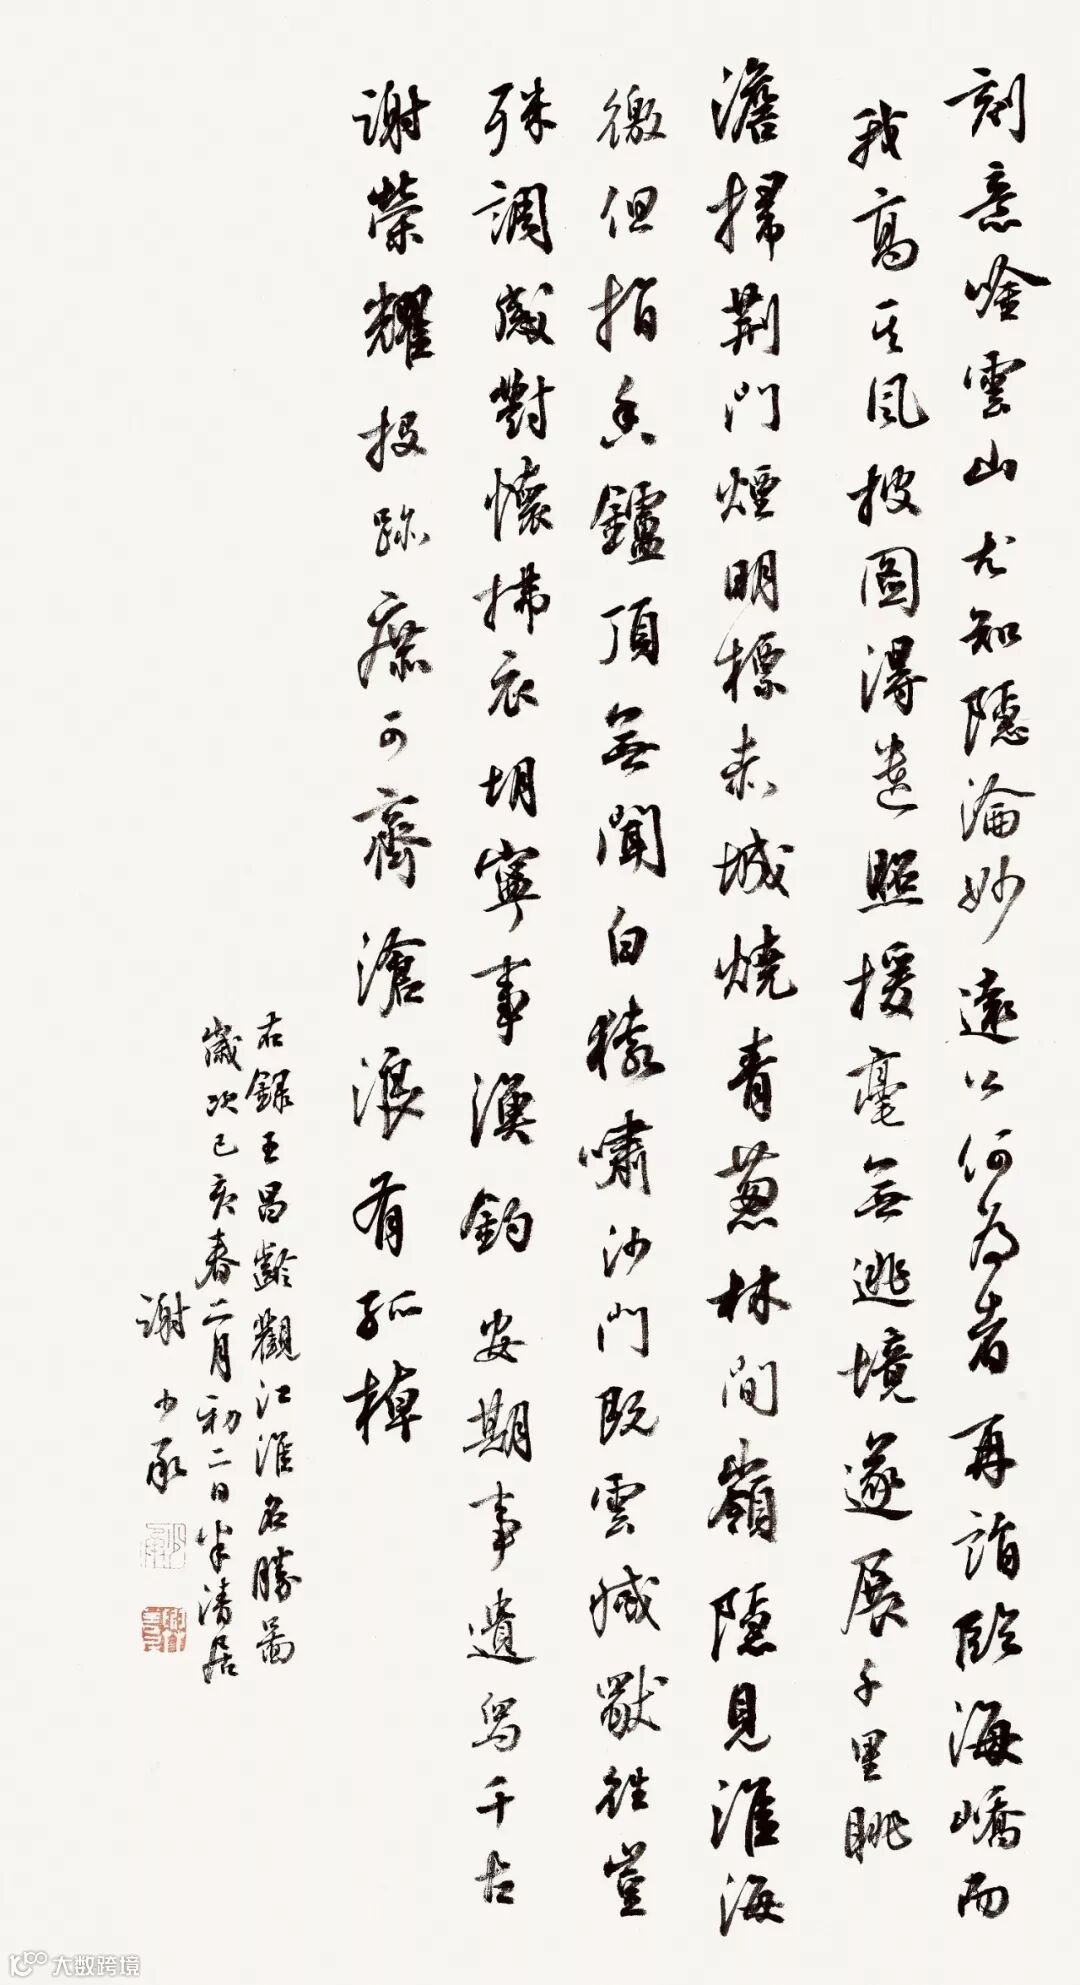 刻意唫雲山尤知隱淪妙遠公何為者再詣臨海嶠而
我高其風披圖得遺照援毫無逃境遂展千里眺
澹掃荆門煙明標赤城燒青蔥林間嶺隱見淮海
徼但指香鑪頂無聞白猿嘯沙門既雲滅獸往豈
殊調感對懷拂衣胡寧事漁釣安期事遺舄千古
謝榮耀投跡庶可齊滄浪有孤棹
右録王昌齡觀江淮名勝圖
歲次己亥春二月初二日半清居
謝少承
大数跨境